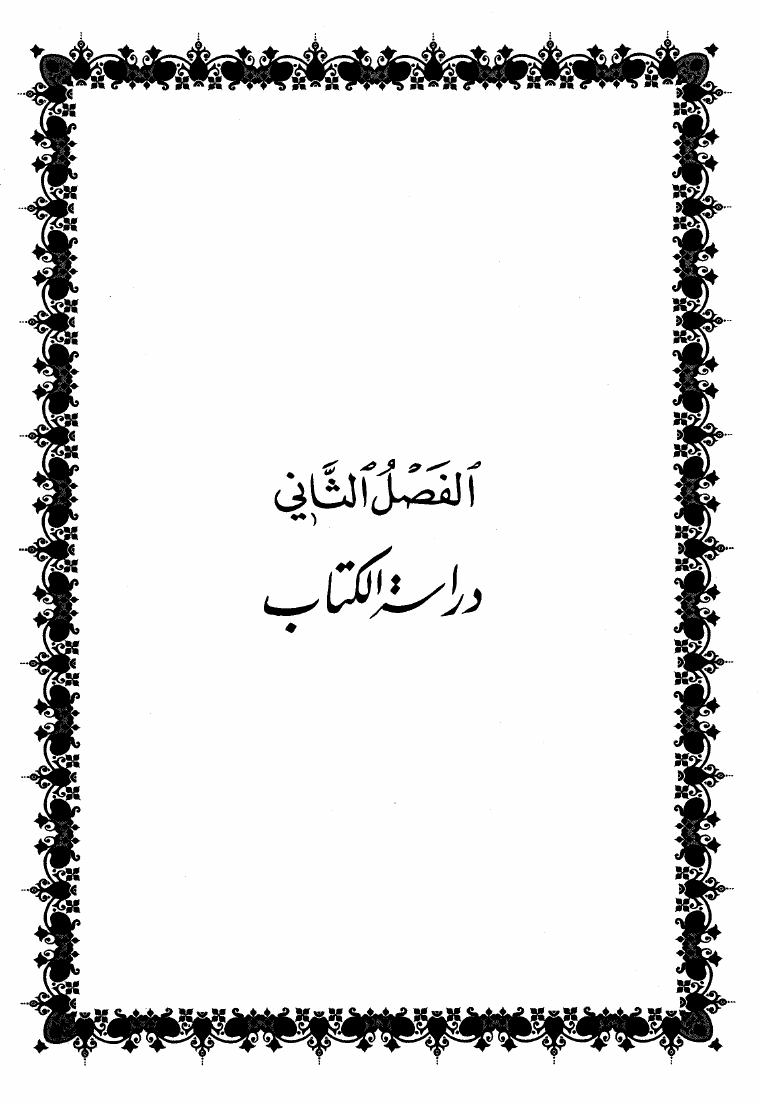 ٱلفَصْلُ ٱلثَّانِي
دراسة الكتاب